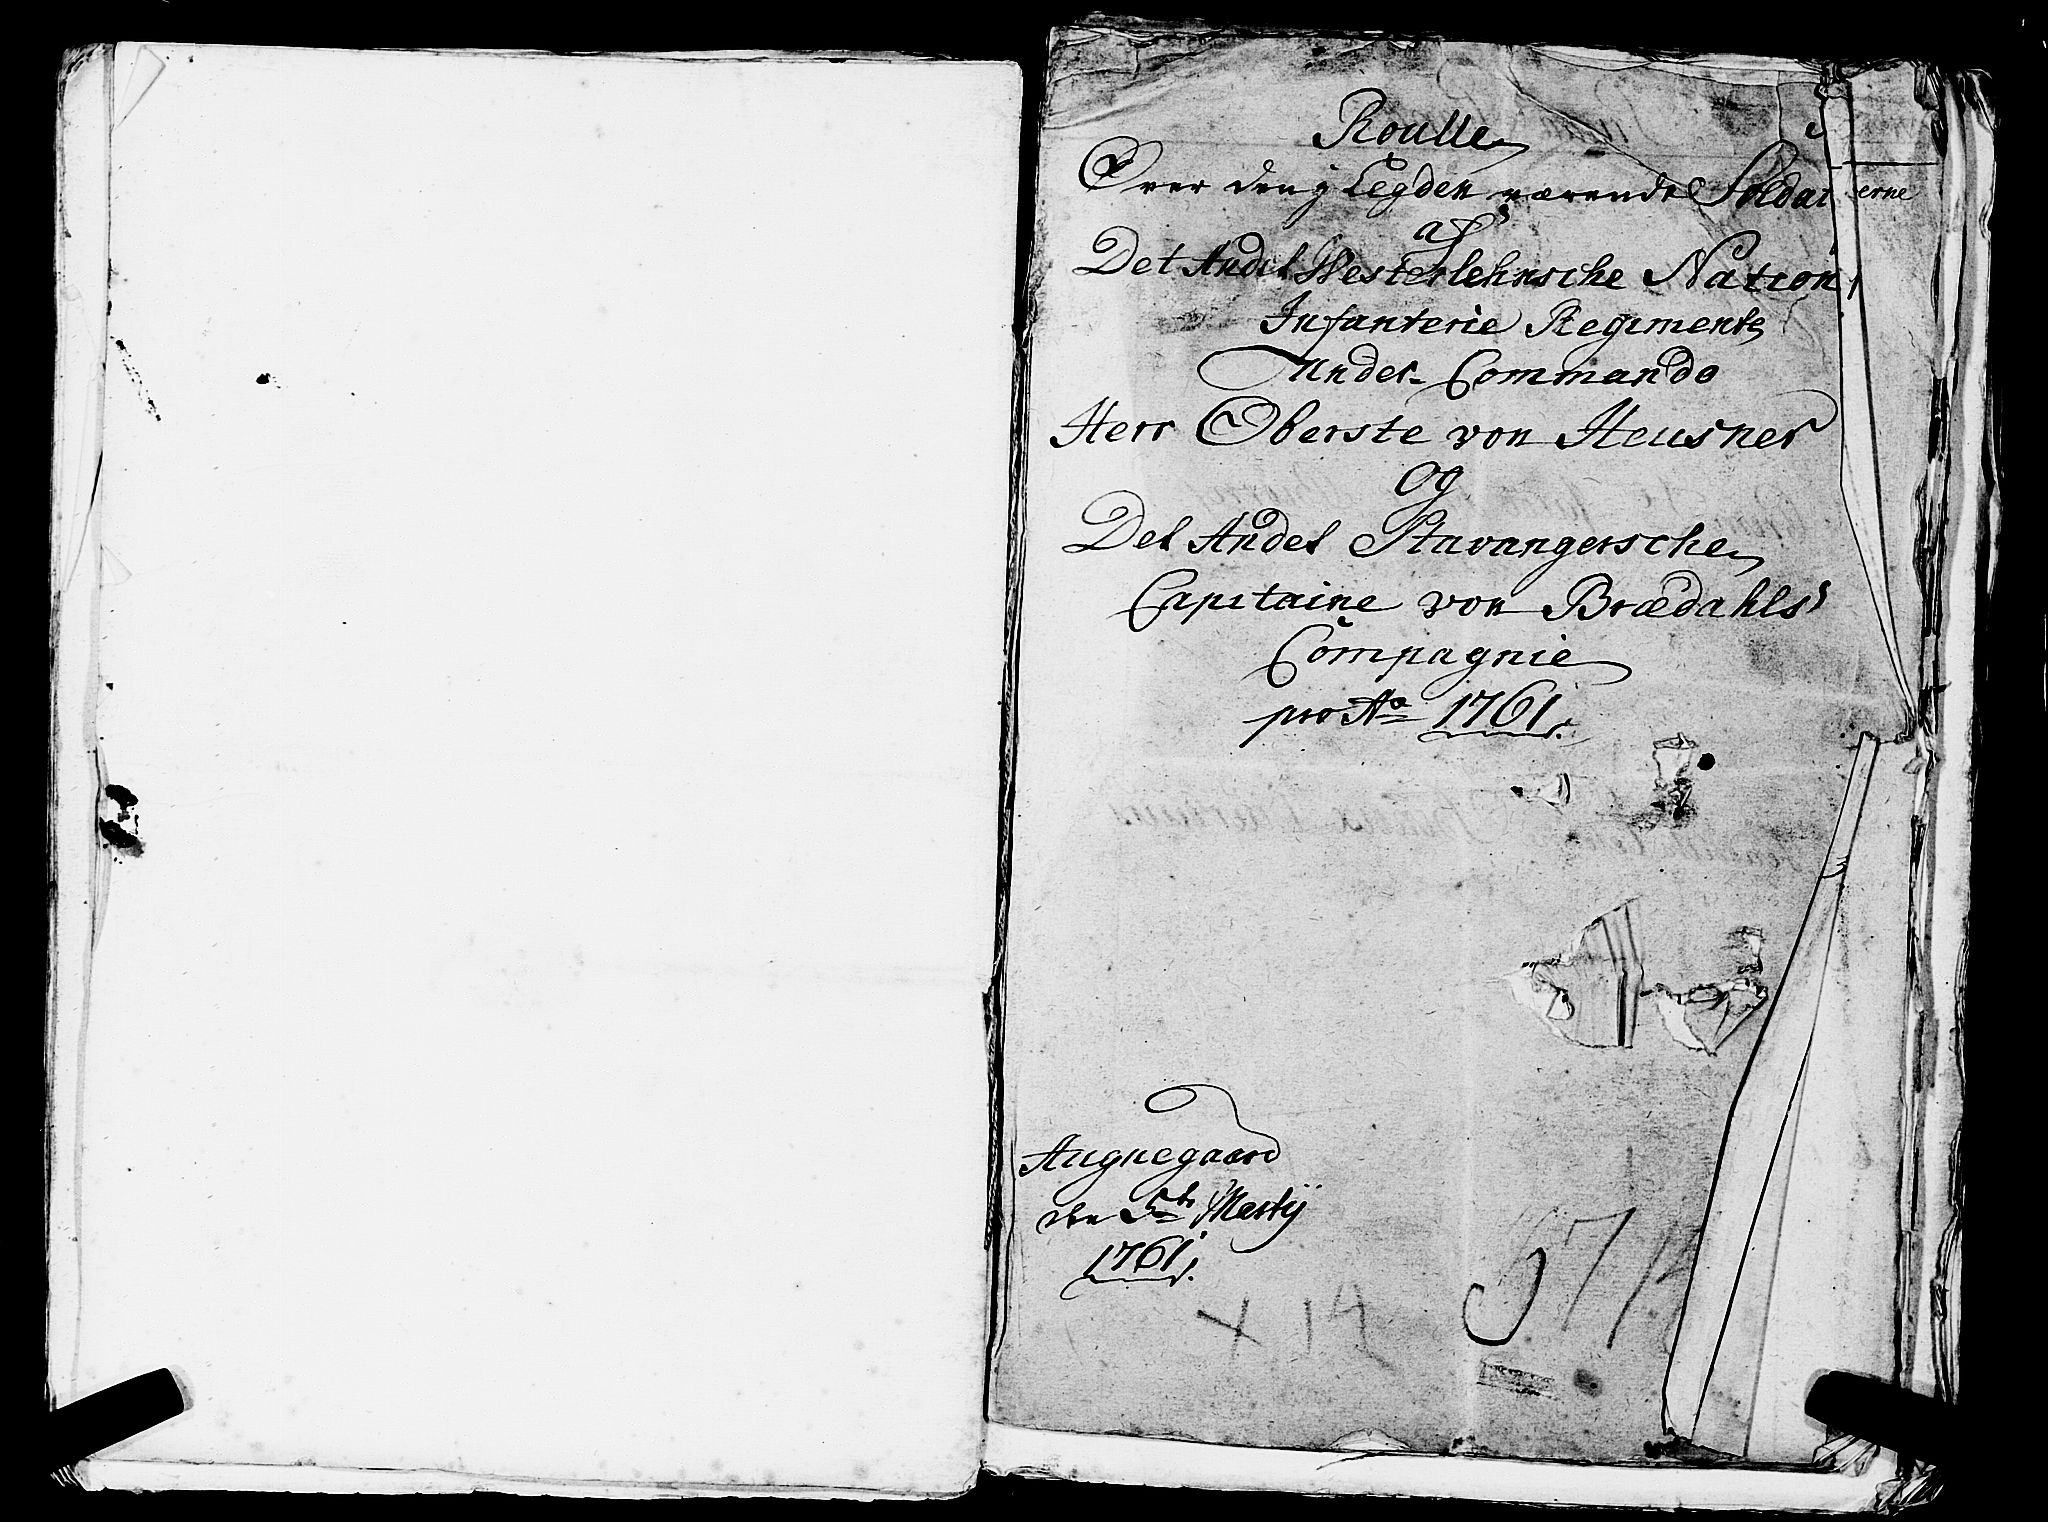 Roulle
Over den j Legden værende Soldat erne
af
Det Andet Westerlehnsche Nation
Infanterie Regimente
Under Commando
Herr Oberste von Heusner
Og
Det Andet Stavangersche
Capitaine von Brædahls
Compagnie
pro Ao 1761.
Augnegaard
den 5te Martij
1761.
+ 14